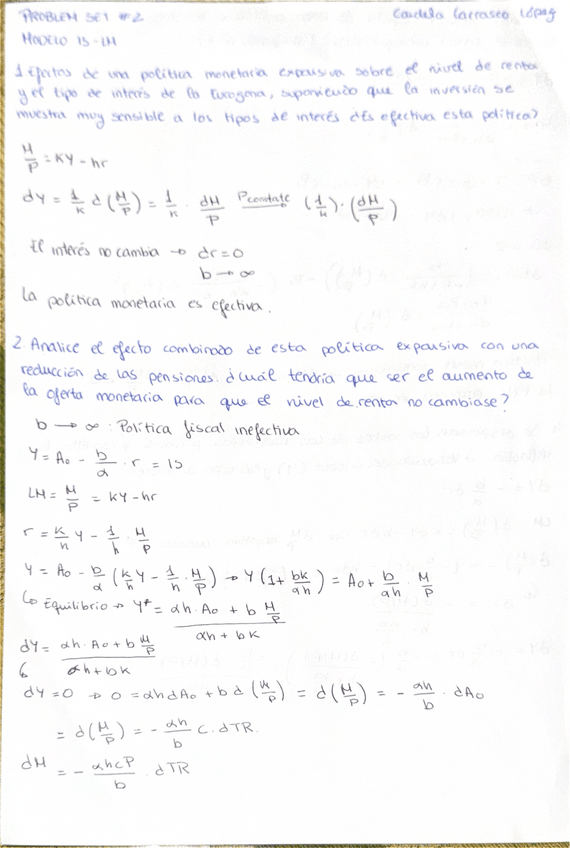 PROBLEM SET #2 Candela Carrasco López
MODELO IS-LM
1 Efectos de una política monetaria expansiva sobre el nivel de renta
y el tipo de interés de la Eurozona, suponiendo que la inversión se
muestra muy sensible a los tipos de interés ¿Es efectiva esta política?
M/P = KY - hr
dY = 1/K d(M/P) = 1/K · dM/P P constante (1/K) · (dM/P)
El interés no cambia → dr = 0
b → ∞
La política monetaria es efectiva.
2. Analice el efecto combinado de esta política expansiva con una
reducción de las pensiones. ¿Cuál tendría que ser el aumento de
la oferta monetaria para que el nivel de renta no cambiase?
b → ∞ : Política fiscal inefectiva
Y = A₀ - b/α · r = IS
LM = M/P = KY - hr
r = K/h Y - 1/h · M/P
Y = A₀ - b/α (K/h Y - 1/h · M/P) → Y (1 + bK/αh) = A₀ + b/αh · M/P
↳ Equilibrio → Y* = (αh · A₀ + b M/P)/(αh + bK)
dY = (αh · A₀ + b M/P)/(αh + bK)
dY = 0 → 0 = αh dA₀ + b d(M/P) = d(M/P) = - αh/b · dA₀
= d(M/P) = - αh/b c · dTR.
dM = - αhcP/b · dTR